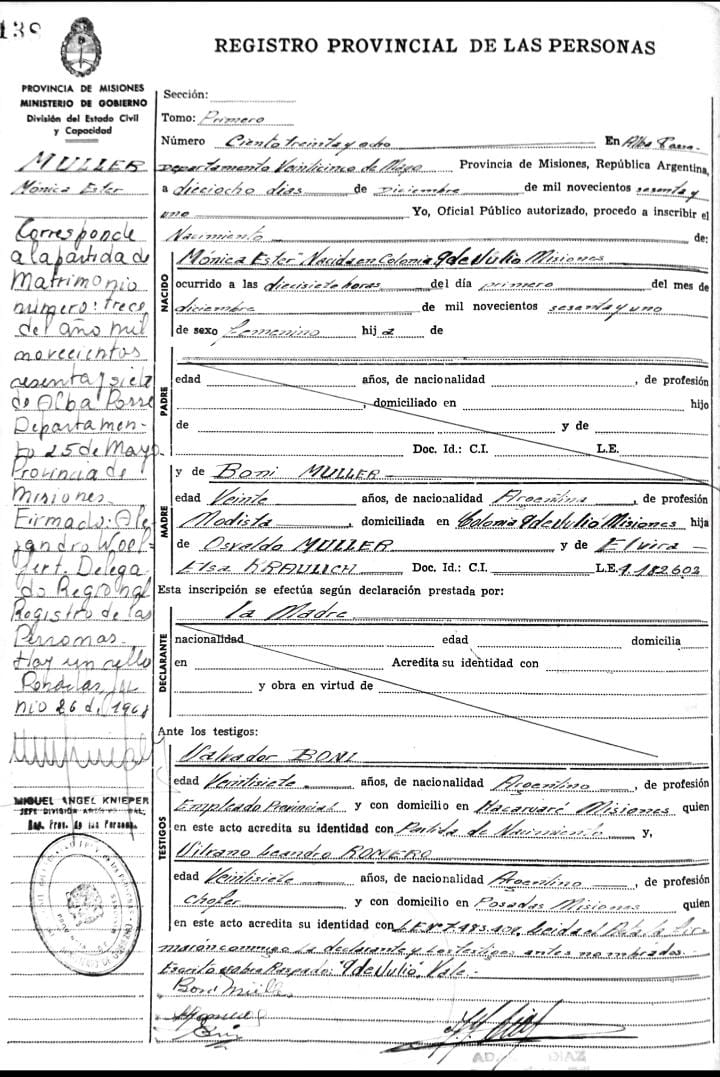 138
REGISTRO PROVINCIAL DE LAS PERSONAS
PROVINCIA DE MISIONES
MINISTERIO DE GOBIERNO
División del Estado Civil
y Capacidad
MULLER
Mónica Ester
Corresponde
a la partida de
Matrimonio
número: trece
del año mil
novecientos
sesenta y siete
de Alba Posse
Departamen-
to 25 de Mayo
Provincia de
Misiones.
Firmado: Ale-
jandro
Delega
do Regional
Registro de las
Personas.
Hay un sello
Posadas, Ju
nio 26 de 1968
MIGUEL ANGEL KNIEPER
JEFE DIVISIÓN
Reg. Prov. de las Personas
Sección:
Tomo: Primero
Número Ciento treinta y ocho En Alba Posse-
Departamento Veinticinco de Mayo Provincia de Misiones, República Argentina,
a dieciocho días de Diciembre de mil novecientos sesenta y
uno Yo, Oficial Público autorizado, procedo a inscribir el
Nacimiento de:
NACIDO
"Mónica Ester" Nacida en Colonia 9 de Julio Misiones
ocurrido a las diecisiete horas del día primero del mes de
diciembre de mil novecientos sesenta y uno
de sexo femenino hija de
PADRE
edad años, de nacionalidad , de profesión
, domiciliado en hijo
de y de
Doc. Id.: C.I. L.E.
MADRE
y de Boni MULLER-
edad Veinte años, de nacionalidad Argentina, de profesión
Modista, domiciliada en Colonia 9 de Julio Misiones hija
de Osvaldo MULLER y de Elvira-
Elsa KRAULICH Doc. Id.: C.I. L.E. 1.182.602
Esta inscripción se efectúa según declaración prestada por:
DECLARANTE
la Madre
nacionalidad edad domicilia
en Acredita su identidad con
y obra en virtud de
Ante los testigos:
TESTIGOS
Salvador BONI
edad Veintisiete años, de nacionalidad Argentino, de profesión
Empleado Provincial y con domicilio en Misiones quien
en este acto acredita su identidad con Partida de Nacimiento y,
Leandro ROMERO
edad Veintisiete años, de nacionalidad Argentino, de profesión
Chofer y con domicilio en Posadas Misiones quien
en este acto acredita su identidad con L.E. Nº 7.483.404, Leida el Acta, la fir-
maron conmigo la declarante y los testigos antes nombrados.
Escrito sobre Raspado: "9 de Julio", Vale.-
Boni Müller
DIAZ